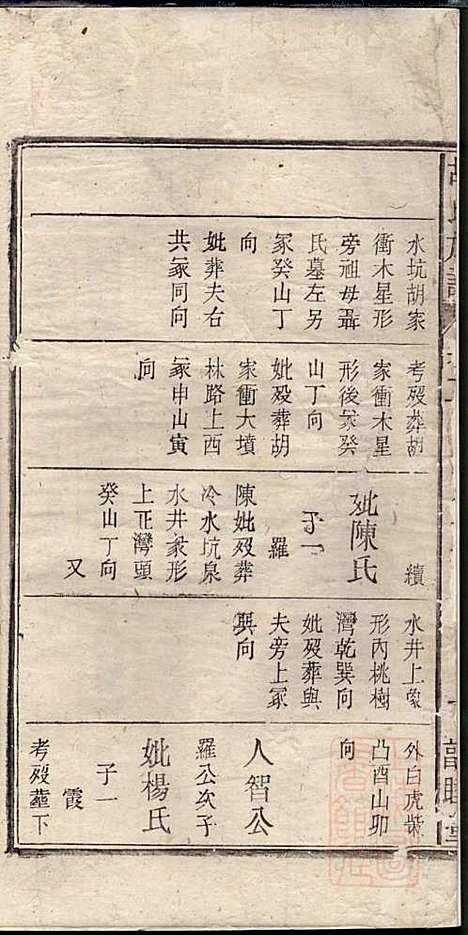 水坑胡家
衝木星形
旁祖母聶
氏墓左另
冢癸山丁
向
妣葬夫右
共冢同向
考殁葬胡
家衝木星
形後冢癸
山丁向
妣殁葬胡
家衝大墳
林路上酉
冢申山寅
向
續
妣陳氏
子一
羅
陳妣殁葬
冷水坑泉
水井象形
上正灣頭
癸山丁向
又
水井上象
形內桃樹
灣乾巽向
妣殁葬與
夫旁上冢
巽向
外白虎裝
凸酉山卯
向
人智公
羅公次子
妣楊氏
子一
霞
考殁葬下